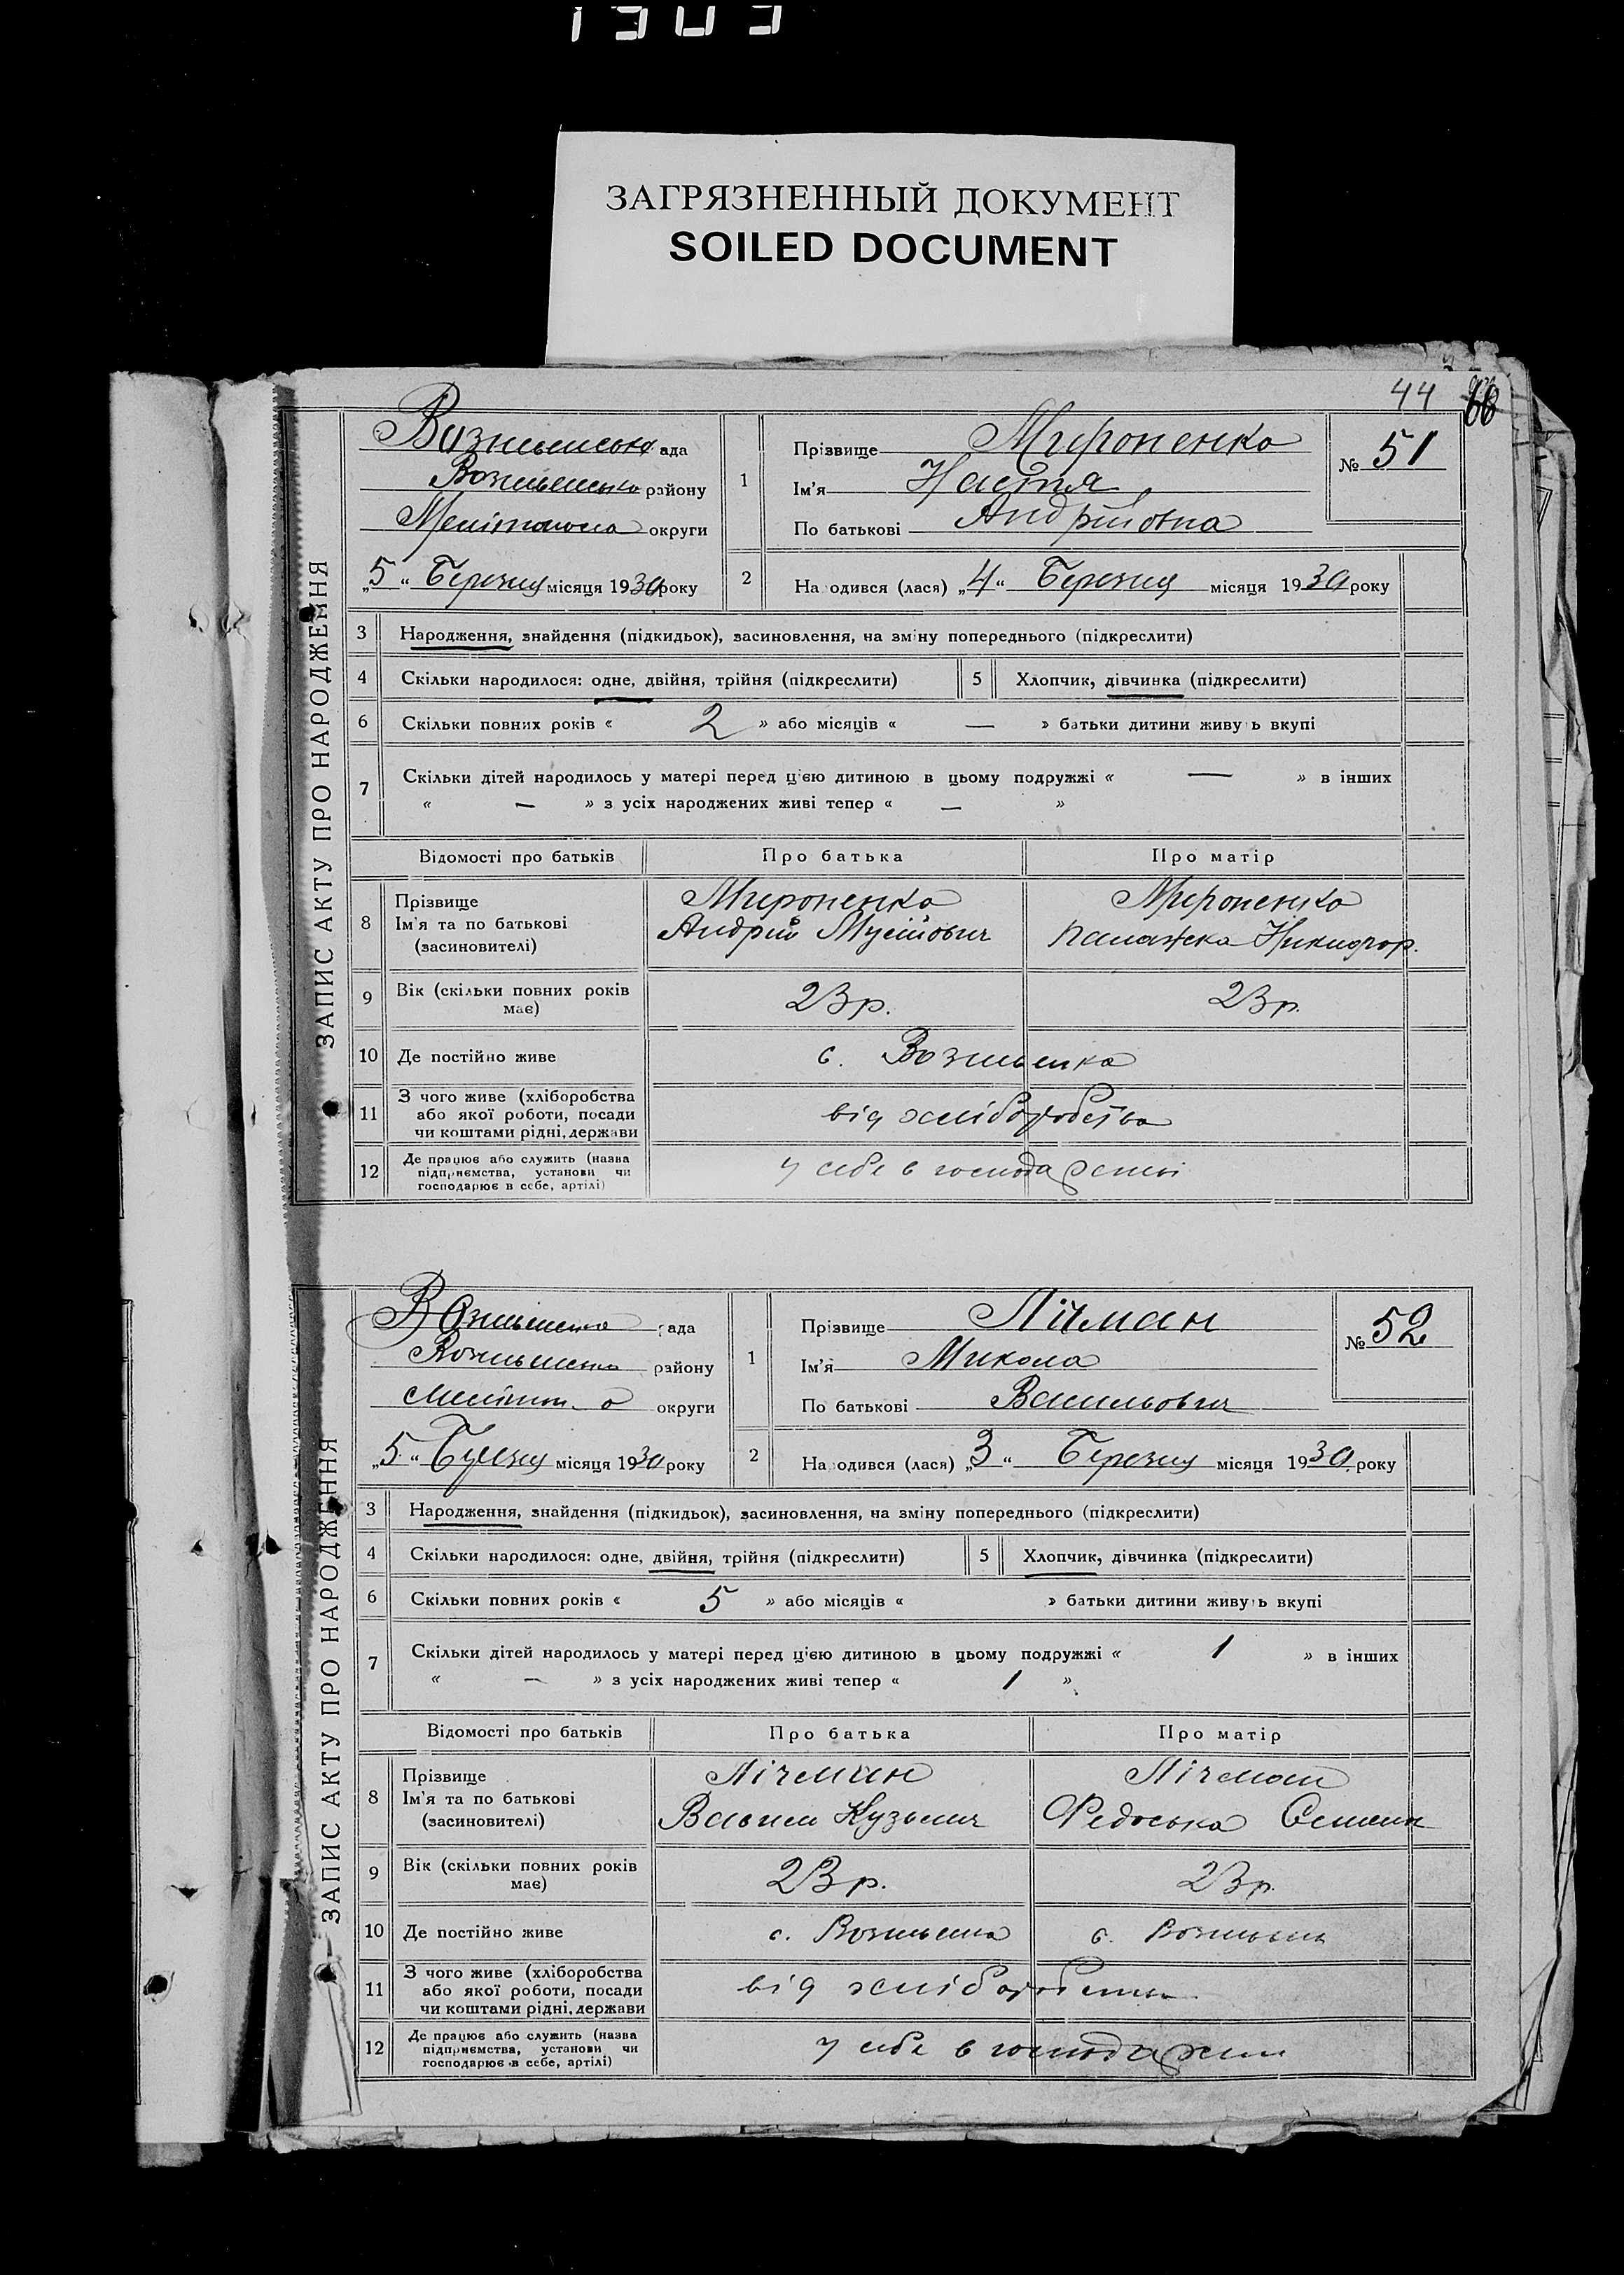 ЗАГРЯЗНЕННЫЙ ДОКУМЕНТ
SOILED DOCUMENT
44
ЗАПИС АКТУ ПРО НАРОДЖЕННЯ
рада
району
округи
„5“ Березня місяця 1930 року
1
Прізвище Мироненко
Ім'я Настя
По батькові Андрійовна
№ 51
2
Народився (лася) „4“ Березня місяця 1930 року
3 Народження, знайдення (підкидьок), засиновлення, на зміну попереднього (підкреслити)
4 Скільки народилося: одне, двійня, трійня (підкреслити) 5 Хлопчик, дівчинка (підкреслити)
6 Скільки повних років « 2 » або місяців « — » батьки дитини живуть вкупі
7 Скільки дітей народилось у матері перед ц'єю дитиною в цьому подружжі « — » в інших
« — » з усіх народжених живі тепер « — »
Відомості про батьків Про батька Про матір
8 Прізвище
Ім'я та по батькові
(засиновителі)
Мироненко
Андрій Мусійович
Мироненко
Палажка Никифор.
9 Вік (скільки повних років
має)
23 р. 23 р.
10 Де постійно живе с.
11 З чого живе (хліборобства
або якої роботи, посади
чи коштами рідні, держави
від хліборобства
12 Де працює або служить (назва
підприємства, установи чи
господарює в себе, артілі)
у себе в господарстві
ЗАПИС АКТУ ПРО НАРОДЖЕННЯ
рада
району
округи
„5“ Березня місяця 1930 року
1
Прізвище Лічман
Ім'я Микола
По батькові Васильович
№ 52
2
Народився (лася) „3“ Березня місяця 1930 року
3 Народження, знайдення (підкидьок), засиновлення, на зміну попереднього (підкреслити)
4 Скільки народилося: одне, двійня, трійня (підкреслити) 5 Хлопчик, дівчинка (підкреслити)
6 Скільки повних років « 5 » або місяців « » батьки дитини живуть вкупі
7 Скільки дітей народилось у матері перед ц'єю дитиною в цьому подружжі « 1 » в інших
« — » з усіх народжених живі тепер « 1 »
Відомості про батьків Про батька Про матір
8 Прізвище
Ім'я та по батькові
(засиновителі)
Лічман
Василь Кузьмич
Лічман
Федоська Семен
9 Вік (скільки повних років
має)
23 р. 23 р.
10 Де постійно живе с. с.
11 З чого живе (хліборобства
або якої роботи, посади
чи коштами рідні, держави
від хліборобства
12 Де працює або служить (назва
підприємства, установи чи
господарює в себе, артілі)
у себе в господарстві